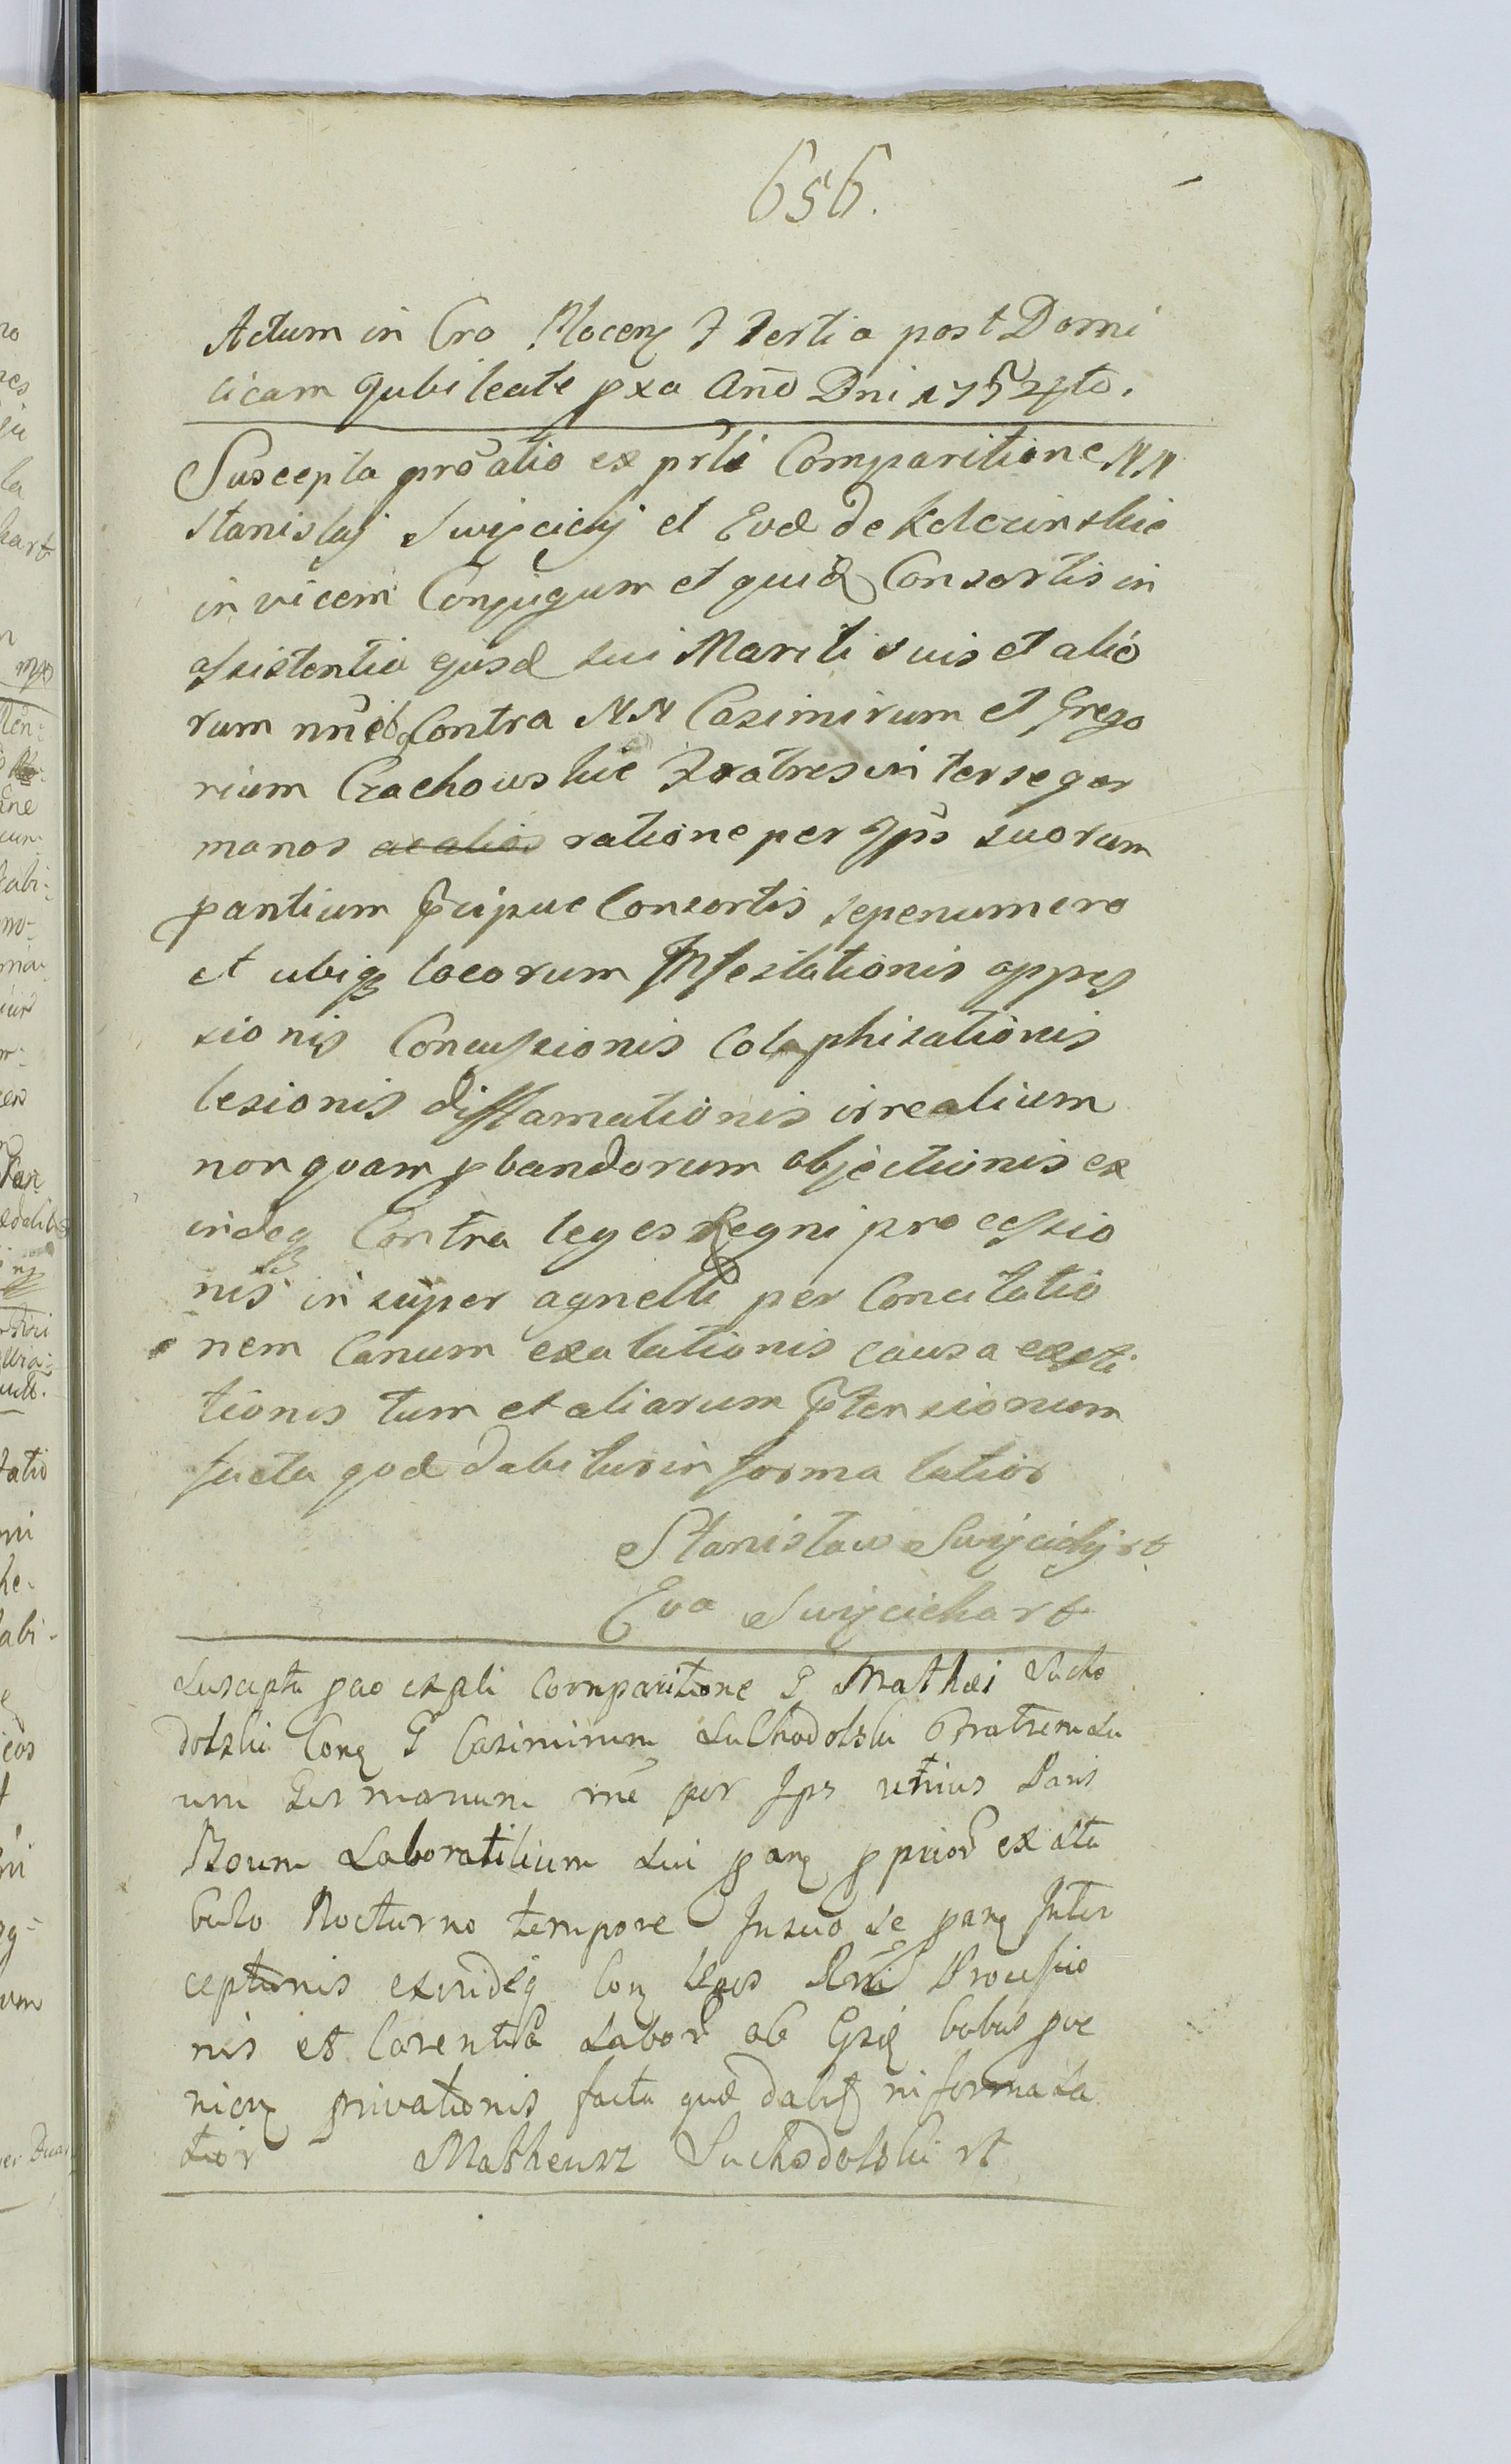 656.
Actum in Cro Plocen F Tertia post Domi
cicam Jubileate pxa Ano Dni 1752do.
Suscepta proatio ex prli Comparitione NN
Stanislaj Swięcicky et Evæ de Kelczinskie
in vicem Conjugum et quid Consortis in
assistentia ejusd sui Mariti suis et alio
rum nneb Contra NN Casimirum et Grego
rium Czachowskie Fratres in ter se ger
manos ac alios ratione per Jps suorum
pantium pcipue Consortis sepenumero
et ubiq locorum Infestationis oppres
sionis Concussionis Colaphisationis
lesionis diffamationis irrealium
nonquam pbandorum objectionis ex
indeq Contra leges Regni processio
nis in super agnelli per Concitatio
nem Canum exalationis causa
tionis tum et aliarum ptensionum
facta qod dabitur in forma latior
Stanisław Swięcicky rt
Eva Swięcicka rt
Suscepta pao ex pli Comparitione G Mathæi Sucho
dolski Con G Casimirum Suchodolski Fratrem su
um Germanum rne per Jps unius Paris
Boum Laboratilium sui pan pprior ex sta
bulo Nocturno tempore Insuo se pan Inter
ceptionis exindeq Con leges Rni Processio
nis et Carentia Labor ab Gsq bobus
privationis facta quæ dabit in forma la
tior Matheusz Suchodolski rt